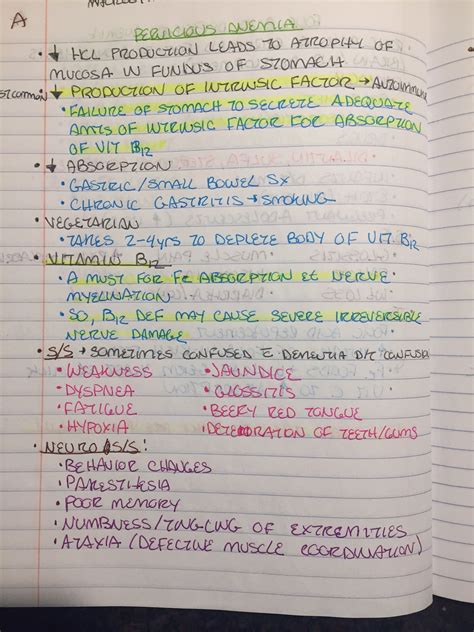 A
PERNICIOUS ANEMIA
• ↓ HCL PRODUCTION LEADS TO ATROPHY OF
MUCOSA IN FUNDUS OF STOMACH
• ↓ PRODUCTION OF INTRINSIC FACTOR → AUTOIMMUNE
• FAILURE OF STOMACH TO SECRETE ADEQUATE
AMTS OF INTRINSIC FACTOR FOR ABSORPTION
OF VIT B12
• ↓ ABSORPTION
• GASTRIC/SMALL BOWEL SX
• CHRONIC GASTRITIS → SMOKING
• VEGETARIAN
• TAKES 2-4yrs TO DEPLETE BODY OF VIT B12
• VITAMIN B12
• A MUST FOR Fe ABSORPTION et NERVE
MYELINATION
• SO, B12 DEF MAY CAUSE SEVERE IRREVERSIBLE
NERVE DAMAGE
• S/S → SOMETIMES CONFUSED c̄ DEMENTIA D/T CONFUSION
• WEAKNESS • JAUNDICE
• DYSPNEA • GLOSSITIS
• FATIGUE • BEEFY RED TONGUE
• HYPOXIA • DETERIORATION OF TEETH/GUMS
• NEURO S/S!
• BEHAVIOR CHANGES
• PARESTHESIA
• POOR MEMORY
• NUMBNESS/TINGLING OF EXTREMITIES
• ATAXIA (DEFECTIVE MUSCLE COORDINATION)